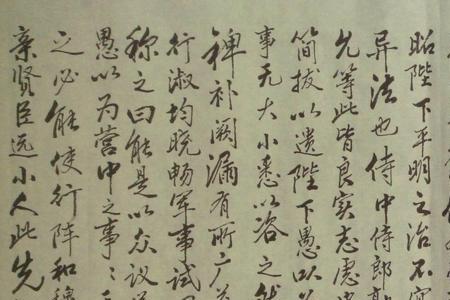 昭陛下平明之治不宜
异法也侍中侍郎郭
允等此皆良实志虑忠
简拔以遗陛下愚以为
事无大小悉以咨之然
裨补阙漏有所广益
行淑均晓畅军事试
称之曰能是以众议举
愚以为营中之事、、
之必能使行阵和穆
亲贤臣远小人此先